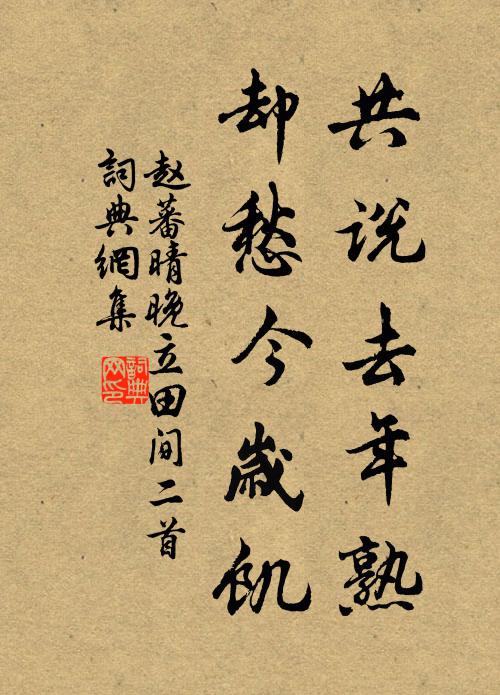 共说去年熟
却愁今岁饥
赵蕃晴晚立田间二首
詞典網集
詞典
网印